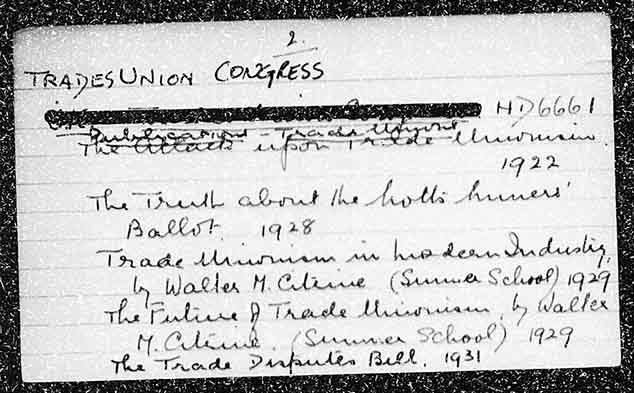 2.
TRADES UNION CONGRESS
HD6661
Publications - Trade Unions
The Attack upon Trade Unionism
1922
The Truth about the Notts Miners'
Ballot. 1928
Trade Unionism in modern Industry,
by Walter M. Citrine (Summer School) 1929
The Future of Trade Unionism, by Walter
M. Citrine. (Summer School) 1929
The Trade Disputes Bill. 1931